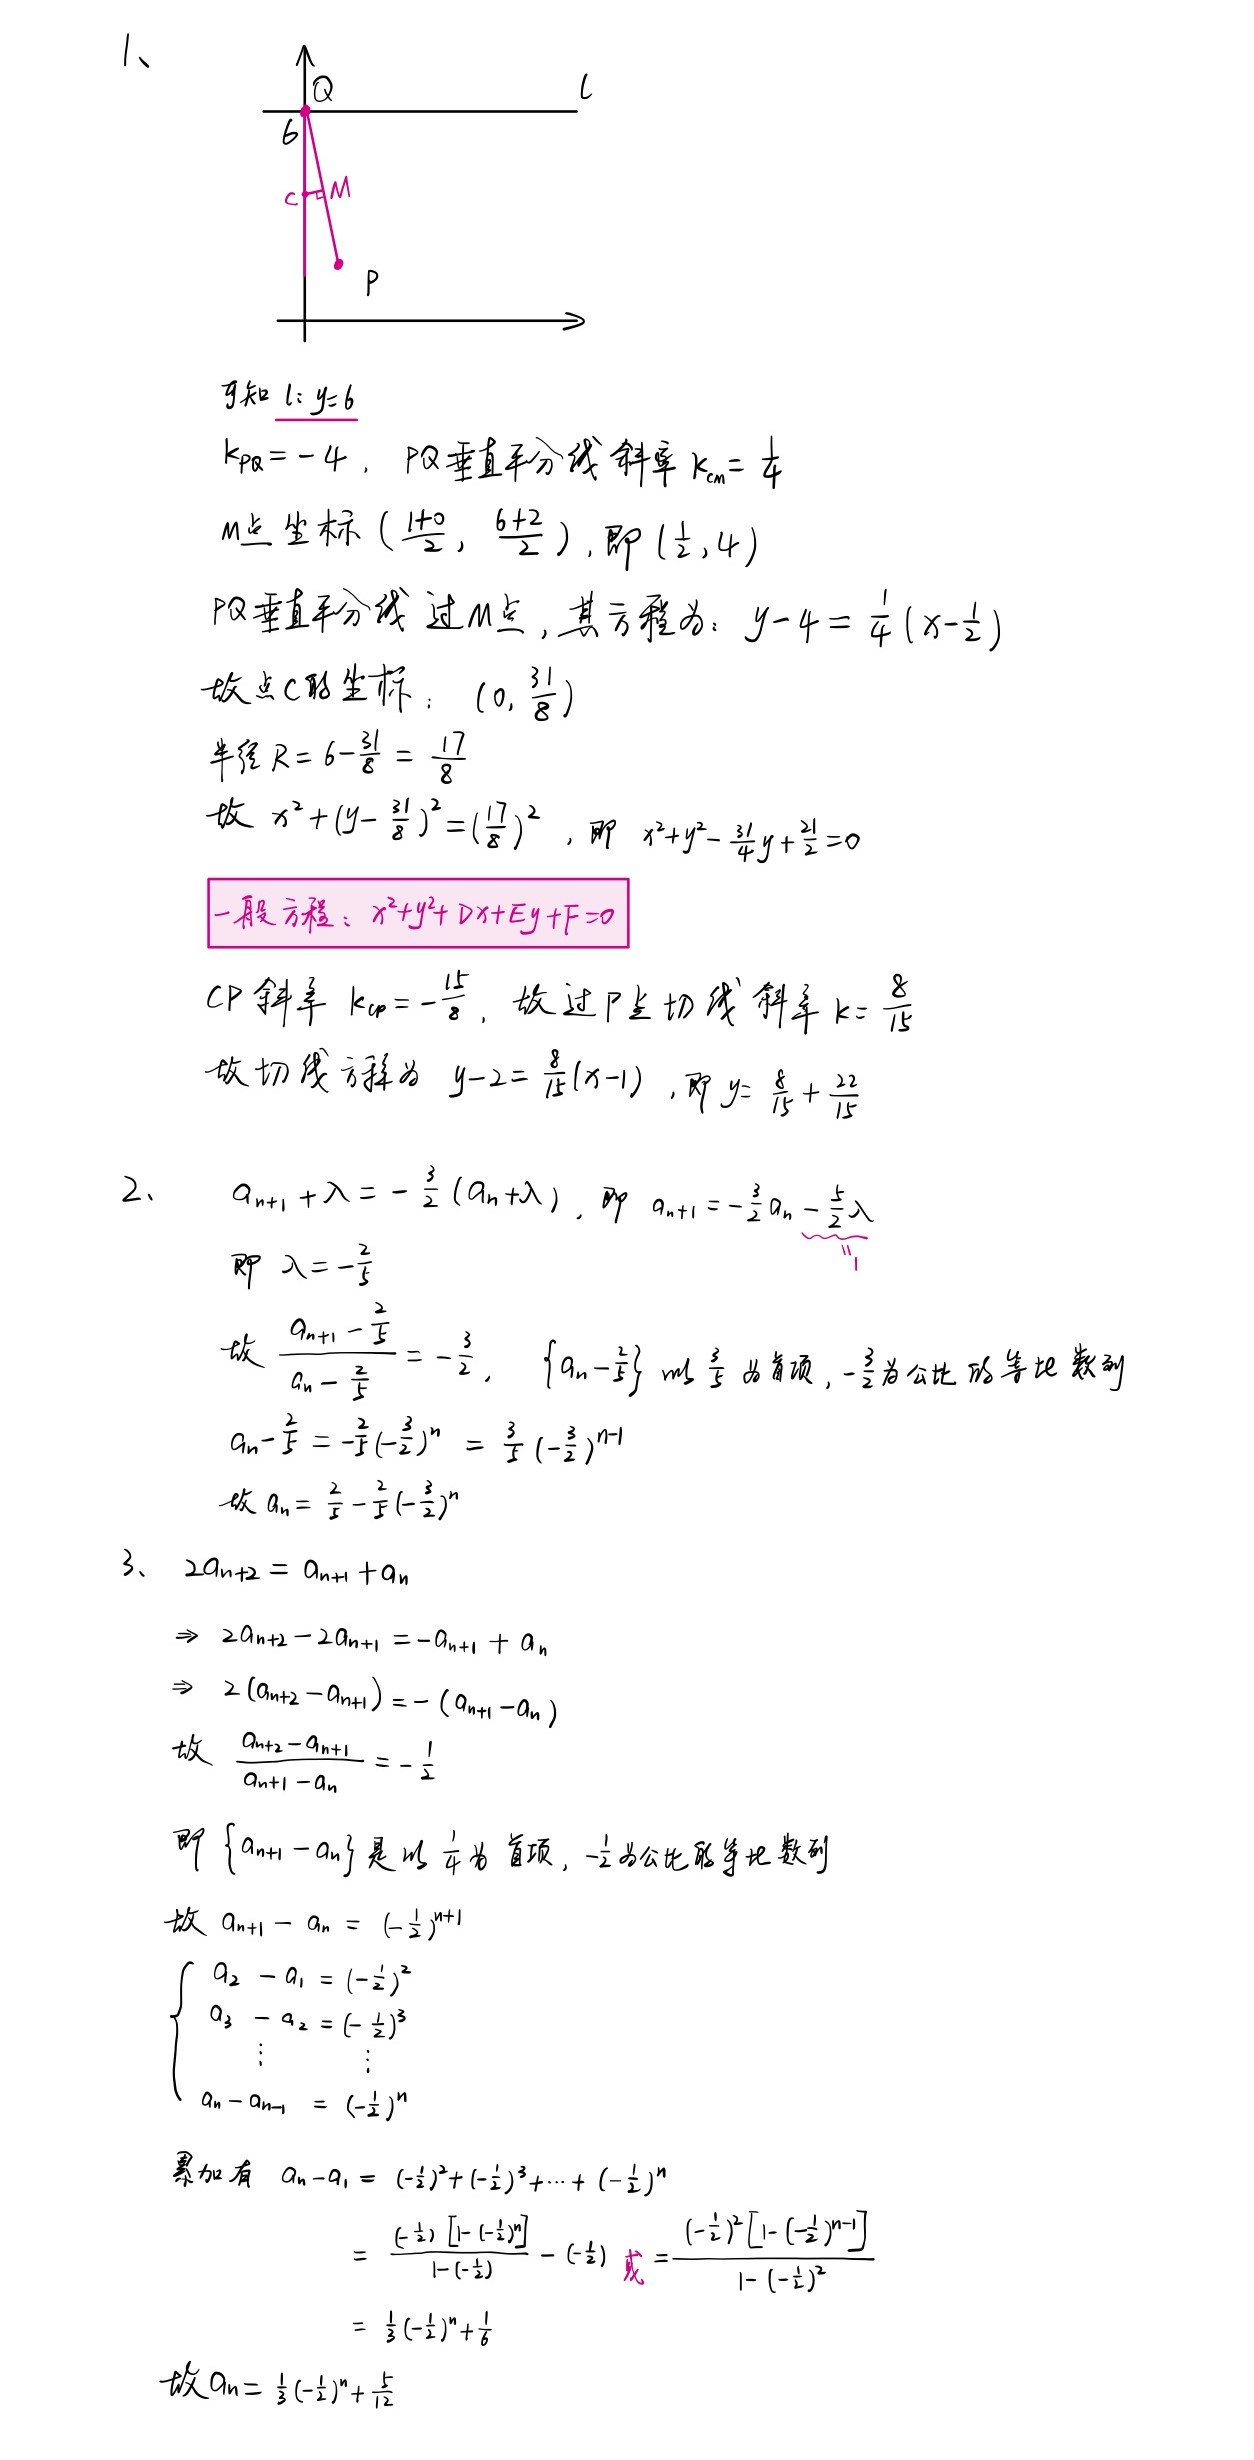 1、
Q
l
6
C
M
P
可知 l: y=6
k_{PQ} = -4, PQ垂直平分线 斜率 k_{CM} = \frac{1}{4}
M点坐标 (\frac{1+0}{2}, \frac{6+2}{2}), 即 (\frac{1}{2}, 4)
PQ垂直平分线 过M点, 其方程为: y-4 = \frac{1}{4}(x-\frac{1}{2})
故点C的坐标: (0, \frac{31}{8})
半径 R = 6-\frac{31}{8} = \frac{17}{8}
故 x^2+(y-\frac{31}{8})^2=(\frac{17}{8})^2, 即 x^2+y^2-\frac{31}{4}y+\frac{21}{2}=0
一般方程: x^2+y^2+Dx+Ey+F=0
CP 斜率 k_{CP} = -\frac{15}{8}, 故过P点切线斜率 k=\frac{8}{15}
故切线方程为 y-2=\frac{8}{15}(x-1), 即 y=\frac{8}{15}+\frac{22}{15}
2、 a_{n+1}+λ=-\frac{3}{2}(a_n+λ), 即 a_{n+1}=-\frac{3}{2}a_n-\frac{5}{2}λ
=1
即 λ=-\frac{2}{5}
故 \frac{a_{n+1}-\frac{2}{5}}{a_n-\frac{2}{5}}=-\frac{3}{2}, {a_n-\frac{2}{5}} 以 \frac{3}{5} 为首项, -\frac{3}{2}为公比的等比数列
a_n-\frac{2}{5}=-\frac{2}{5}(-\frac{3}{2})^n=\frac{3}{5}(-\frac{3}{2})^{n-1}
故 a_n=\frac{2}{5}-\frac{2}{5}(-\frac{3}{2})^n
3、 2a_{n+2}=a_{n+1}+a_n
⇒ 2a_{n+2}-2a_{n+1}=-a_{n+1}+a_n
⇒ 2(a_{n+2}-a_{n+1})=-(a_{n+1}-a_n)
故 \frac{a_{n+2}-a_{n+1}}{a_{n+1}-a_n}=-\frac{1}{2}
即 {a_{n+1}-a_n} 是以 \frac{1}{4} 为首项, -\frac{1}{2}为公比的等比数列
故 a_{n+1}-a_n=(-\frac{1}{2})^{n+1}
a_2-a_1=(-\frac{1}{2})^2
a_3-a_2=(-\frac{1}{2})^3
⋮ ⋮
a_n-a_{n-1}=(-\frac{1}{2})^n
累加有 a_n-a_1=(-\frac{1}{2})^2+(-\frac{1}{2})^3+⋯+(-\frac{1}{2})^n
=\frac{(-\frac{1}{2})[1-(-\frac{1}{2})^n]}{1-(-\frac{1}{2})}-(-\frac{1}{2}) 或 =\frac{(-\frac{1}{2})^2[1-(-\frac{1}{2})^{n-1}]}{1-(-\frac{1}{2})^2}
=\frac{1}{3}(-\frac{1}{2})^n+\frac{1}{6}
故 a_n=\frac{1}{3}(-\frac{1}{2})^n+\frac{5}{12}